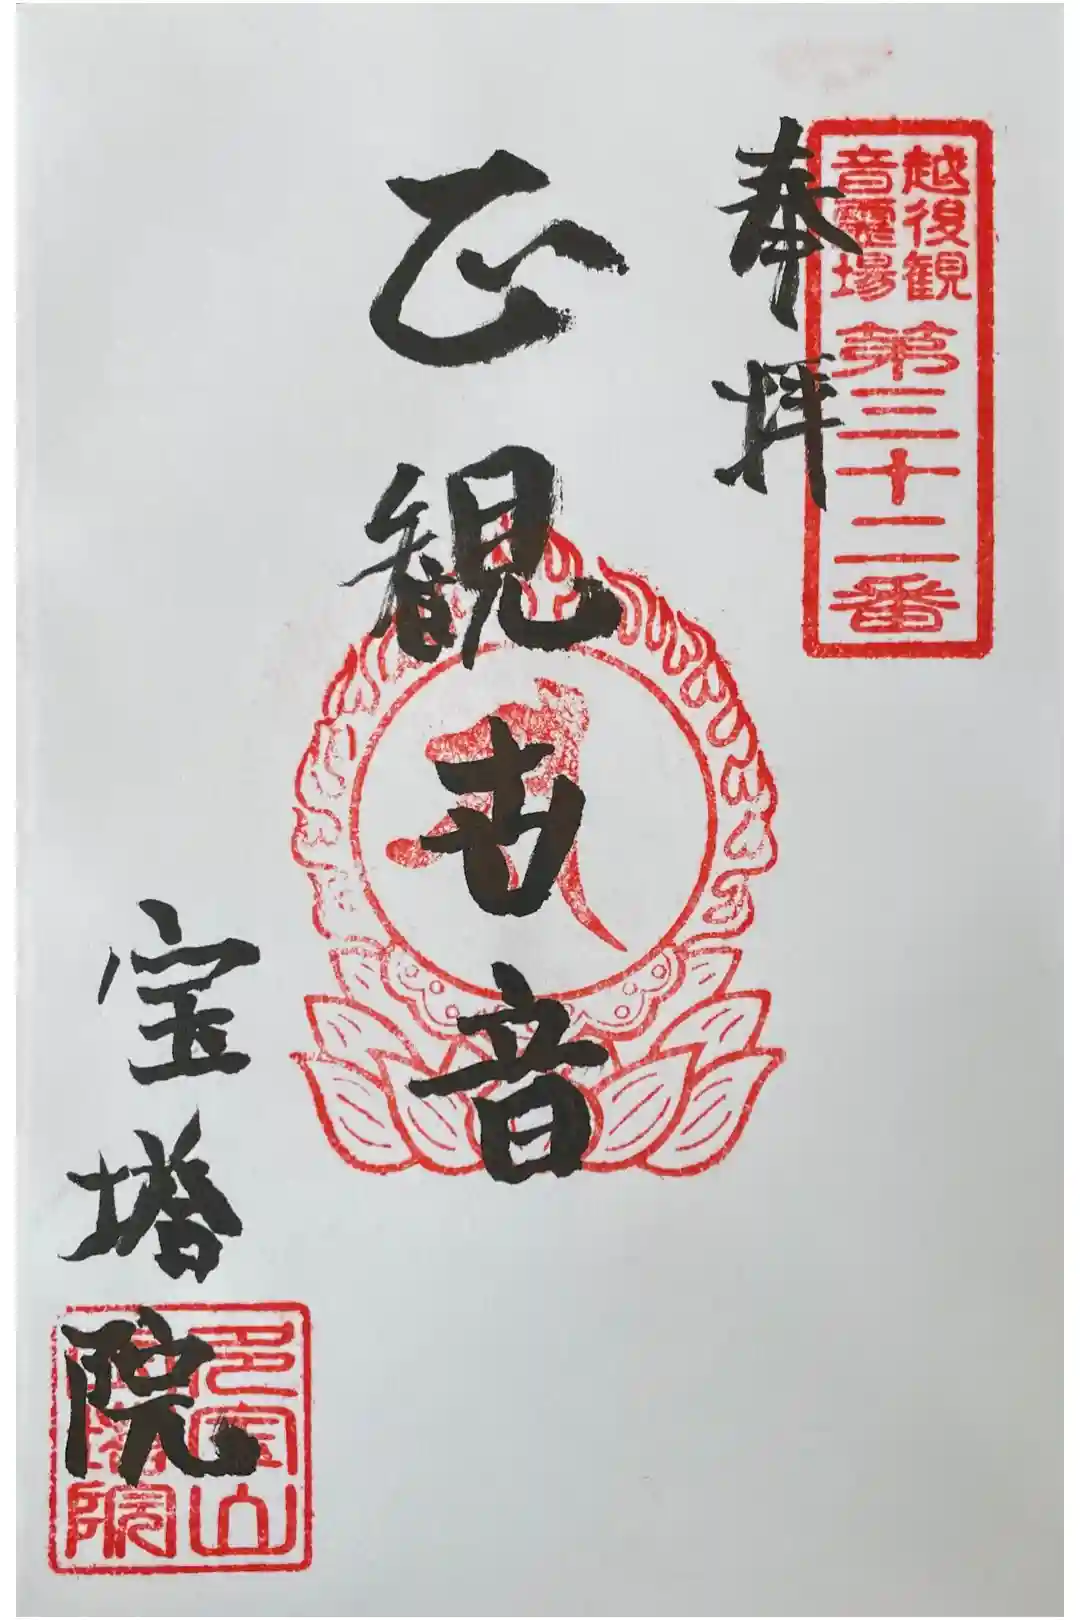 越後観
音霊場
第三十二番
奉拝
正観世音
宝塔院
多宝山
宝塔院